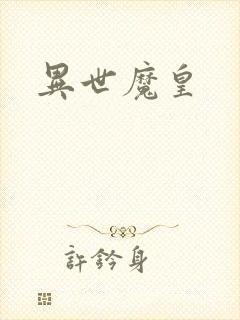 異世魔皇
許鈐身